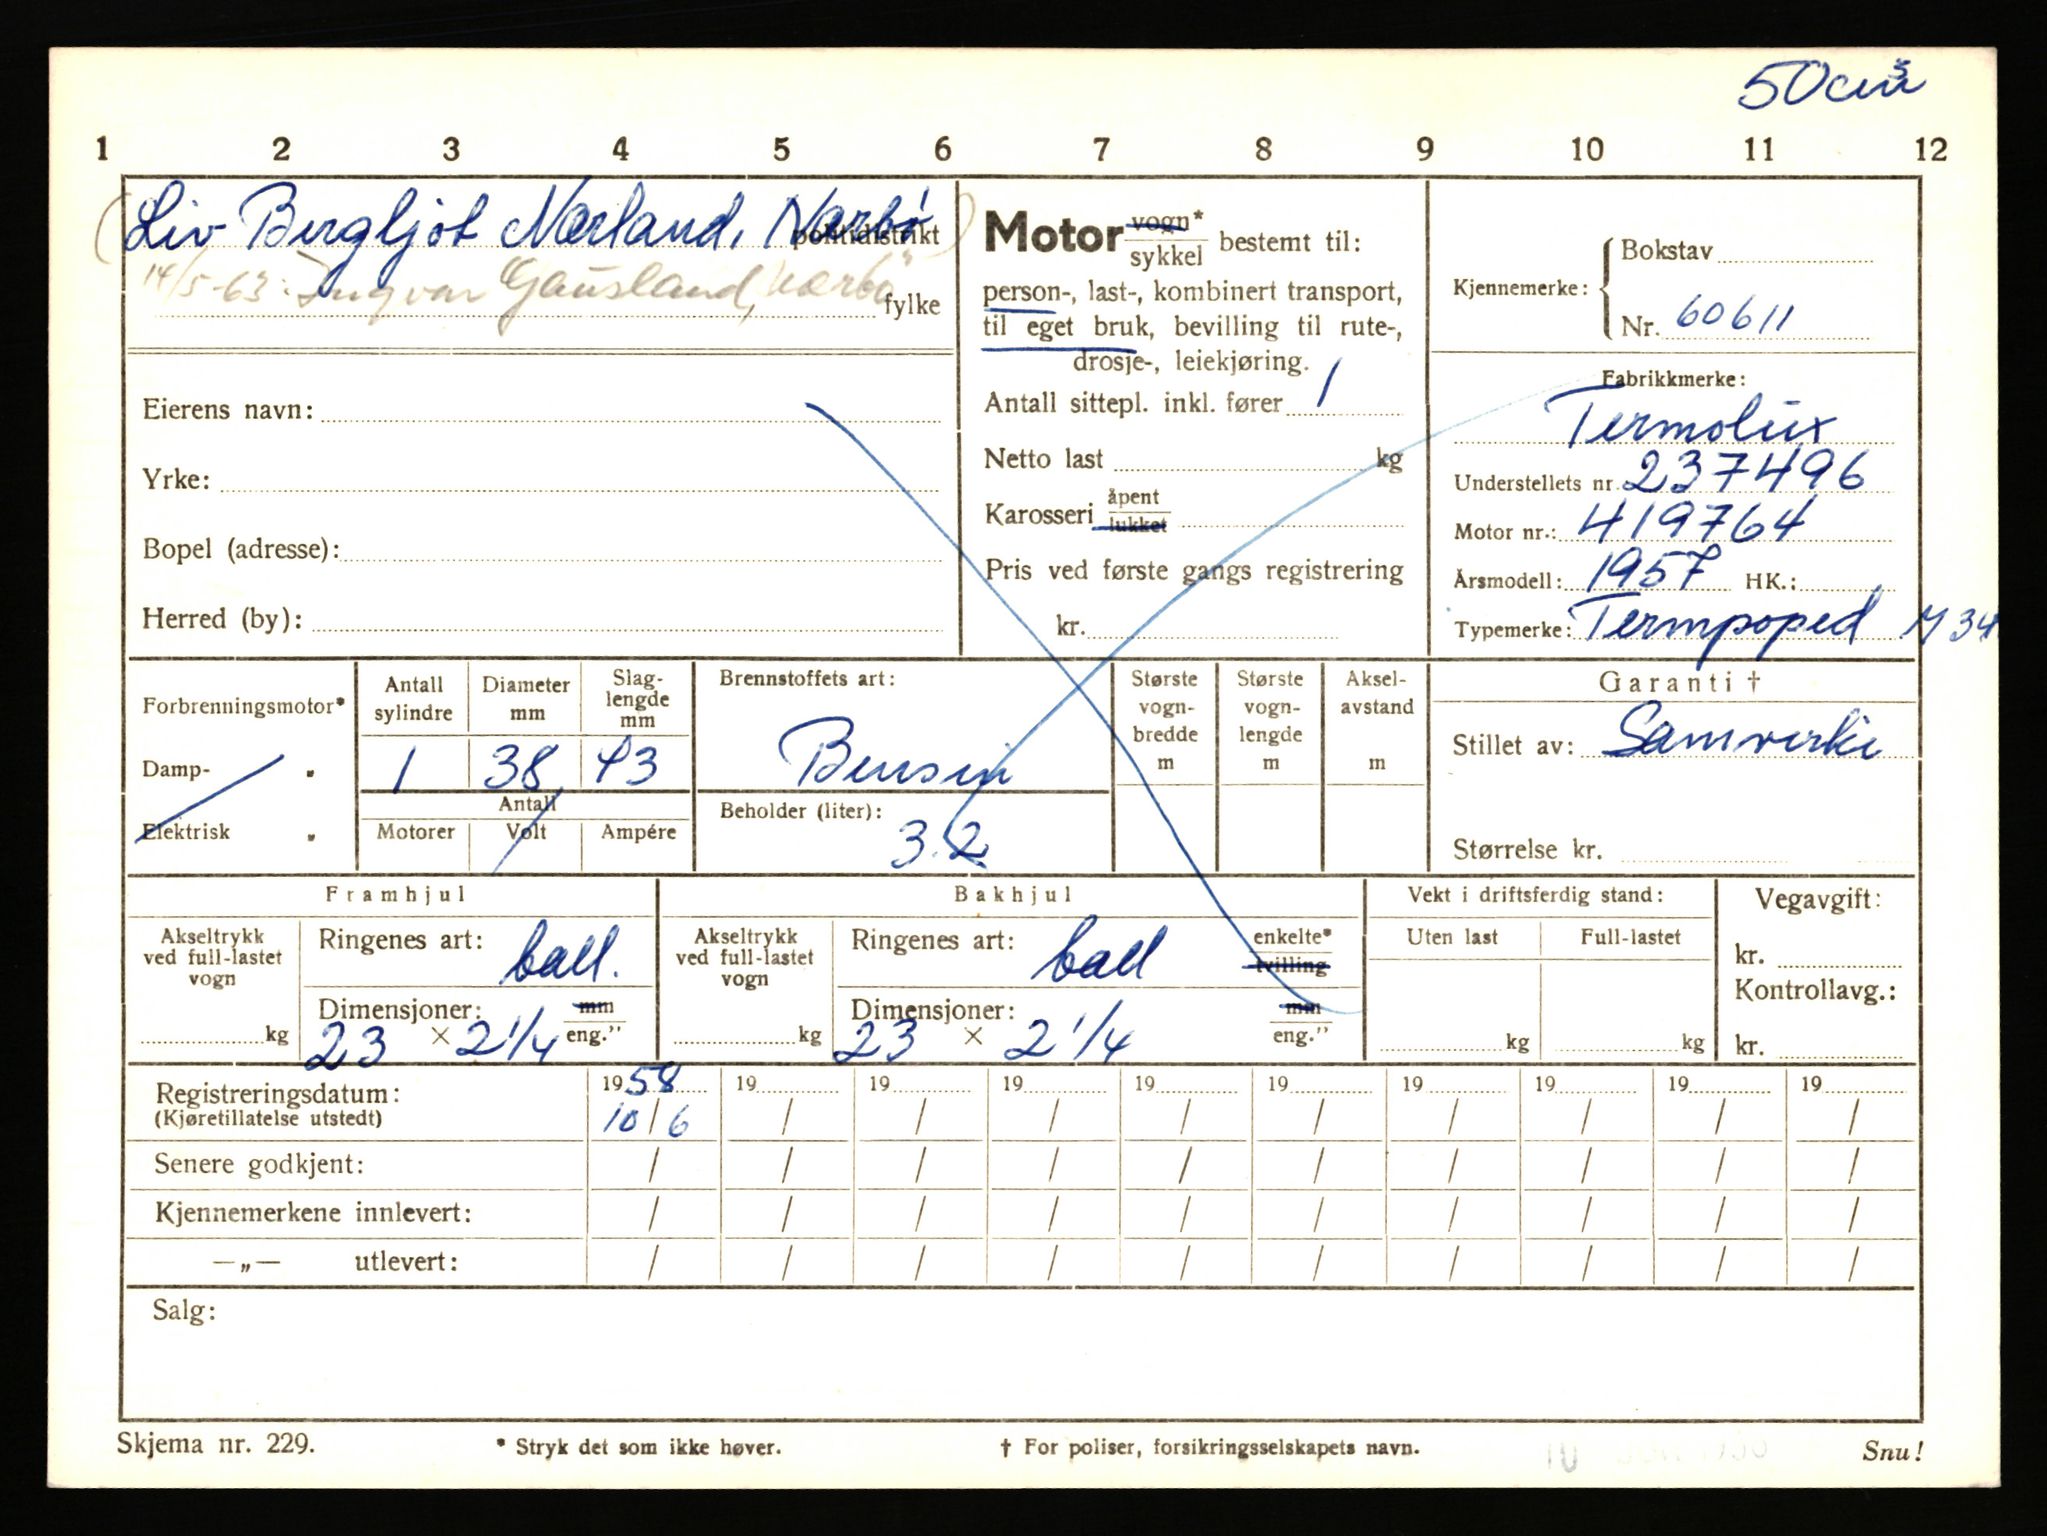 50 cm³
1 2 3 4 5 6 7 8 9 10 11 12
(Liv Bergljot Nærland, Nærbø)
politidistrikt
14/5-63. Ingvar Gausland, Nærbö
fylke
Eierens navn:
Yrke:
Bopel (adresse):
Herred (by):
Motor vogn* / sykkel bestemt til:
person-, last-, kombinert transport,
til eget bruk, bevilling til rute-,
drosje-, leiekjøring.
Antall sittepl. inkl. fører 1
Netto last kg
Karosseri åpent / lukket
Pris ved første gangs registrering
kr.
Kjennemerke: Bokstav
Nr. 60611
Fabrikkmerke:
Termolux
Understellets nr. 237496
Motor nr.: 419764
Årsmodell: 1957 HK.:
Typemerke: Termpoped M 34
Forbrenningsmotor*
Damp- "
Elektrisk "
Antall sylindre
1
Diameter mm
38
Slag-lengde mm
43
Antall
Motorer Volt Ampére
Brennstoffets art:
Bensin
Beholder (liter):
3.2
Største vogn-bredde m
Største vogn-lengde m
Aksel-avstand m
Garanti †
Stillet av: Samvirke
Størrelse kr.
Framhjul
Akseltrykk ved full-lastet vogn
kg
Ringenes art: ball.
Dimensjoner: mm / eng."
23 × 2 1/4
Bakhjul
Akseltrykk ved full-lastet vogn
kg
Ringenes art: ball enkelte* / tvilling
Dimensjoner: mm / eng."
23 × 2 1/4
Vekt i driftsferdig stand:
Uten last Full-lastet
kg kg
Vegavgift:
kr.
Kontrollavg.:
kr.
Registreringsdatum: 1958 19 19 19 19 19 19 19 19 19
(Kjøretillatelse utstedt) 10/6 / / / / / / / / /
Senere godkjent: / / / / / / / / / /
Kjennemerkene innlevert: / / / / / / / / / /
—„— utlevert: / / / / / / / / / /
Salg:
Skjema nr. 229. * Stryk det som ikke høver. † For poliser, forsikringsselskapets navn. Snu!